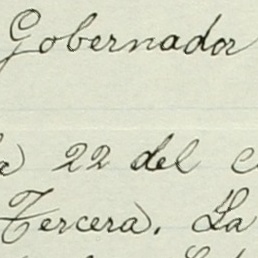 Gobernador
22 del
Tercera. La